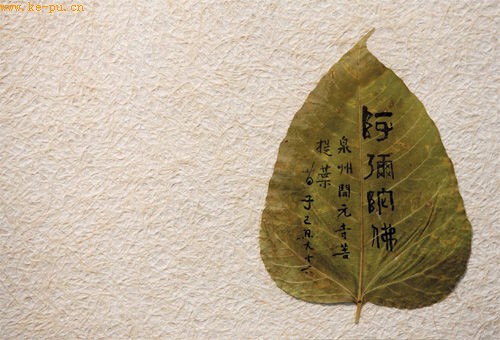 www.ke-pu.cn
阿彌陀佛
泉州開元寺菩
提葉